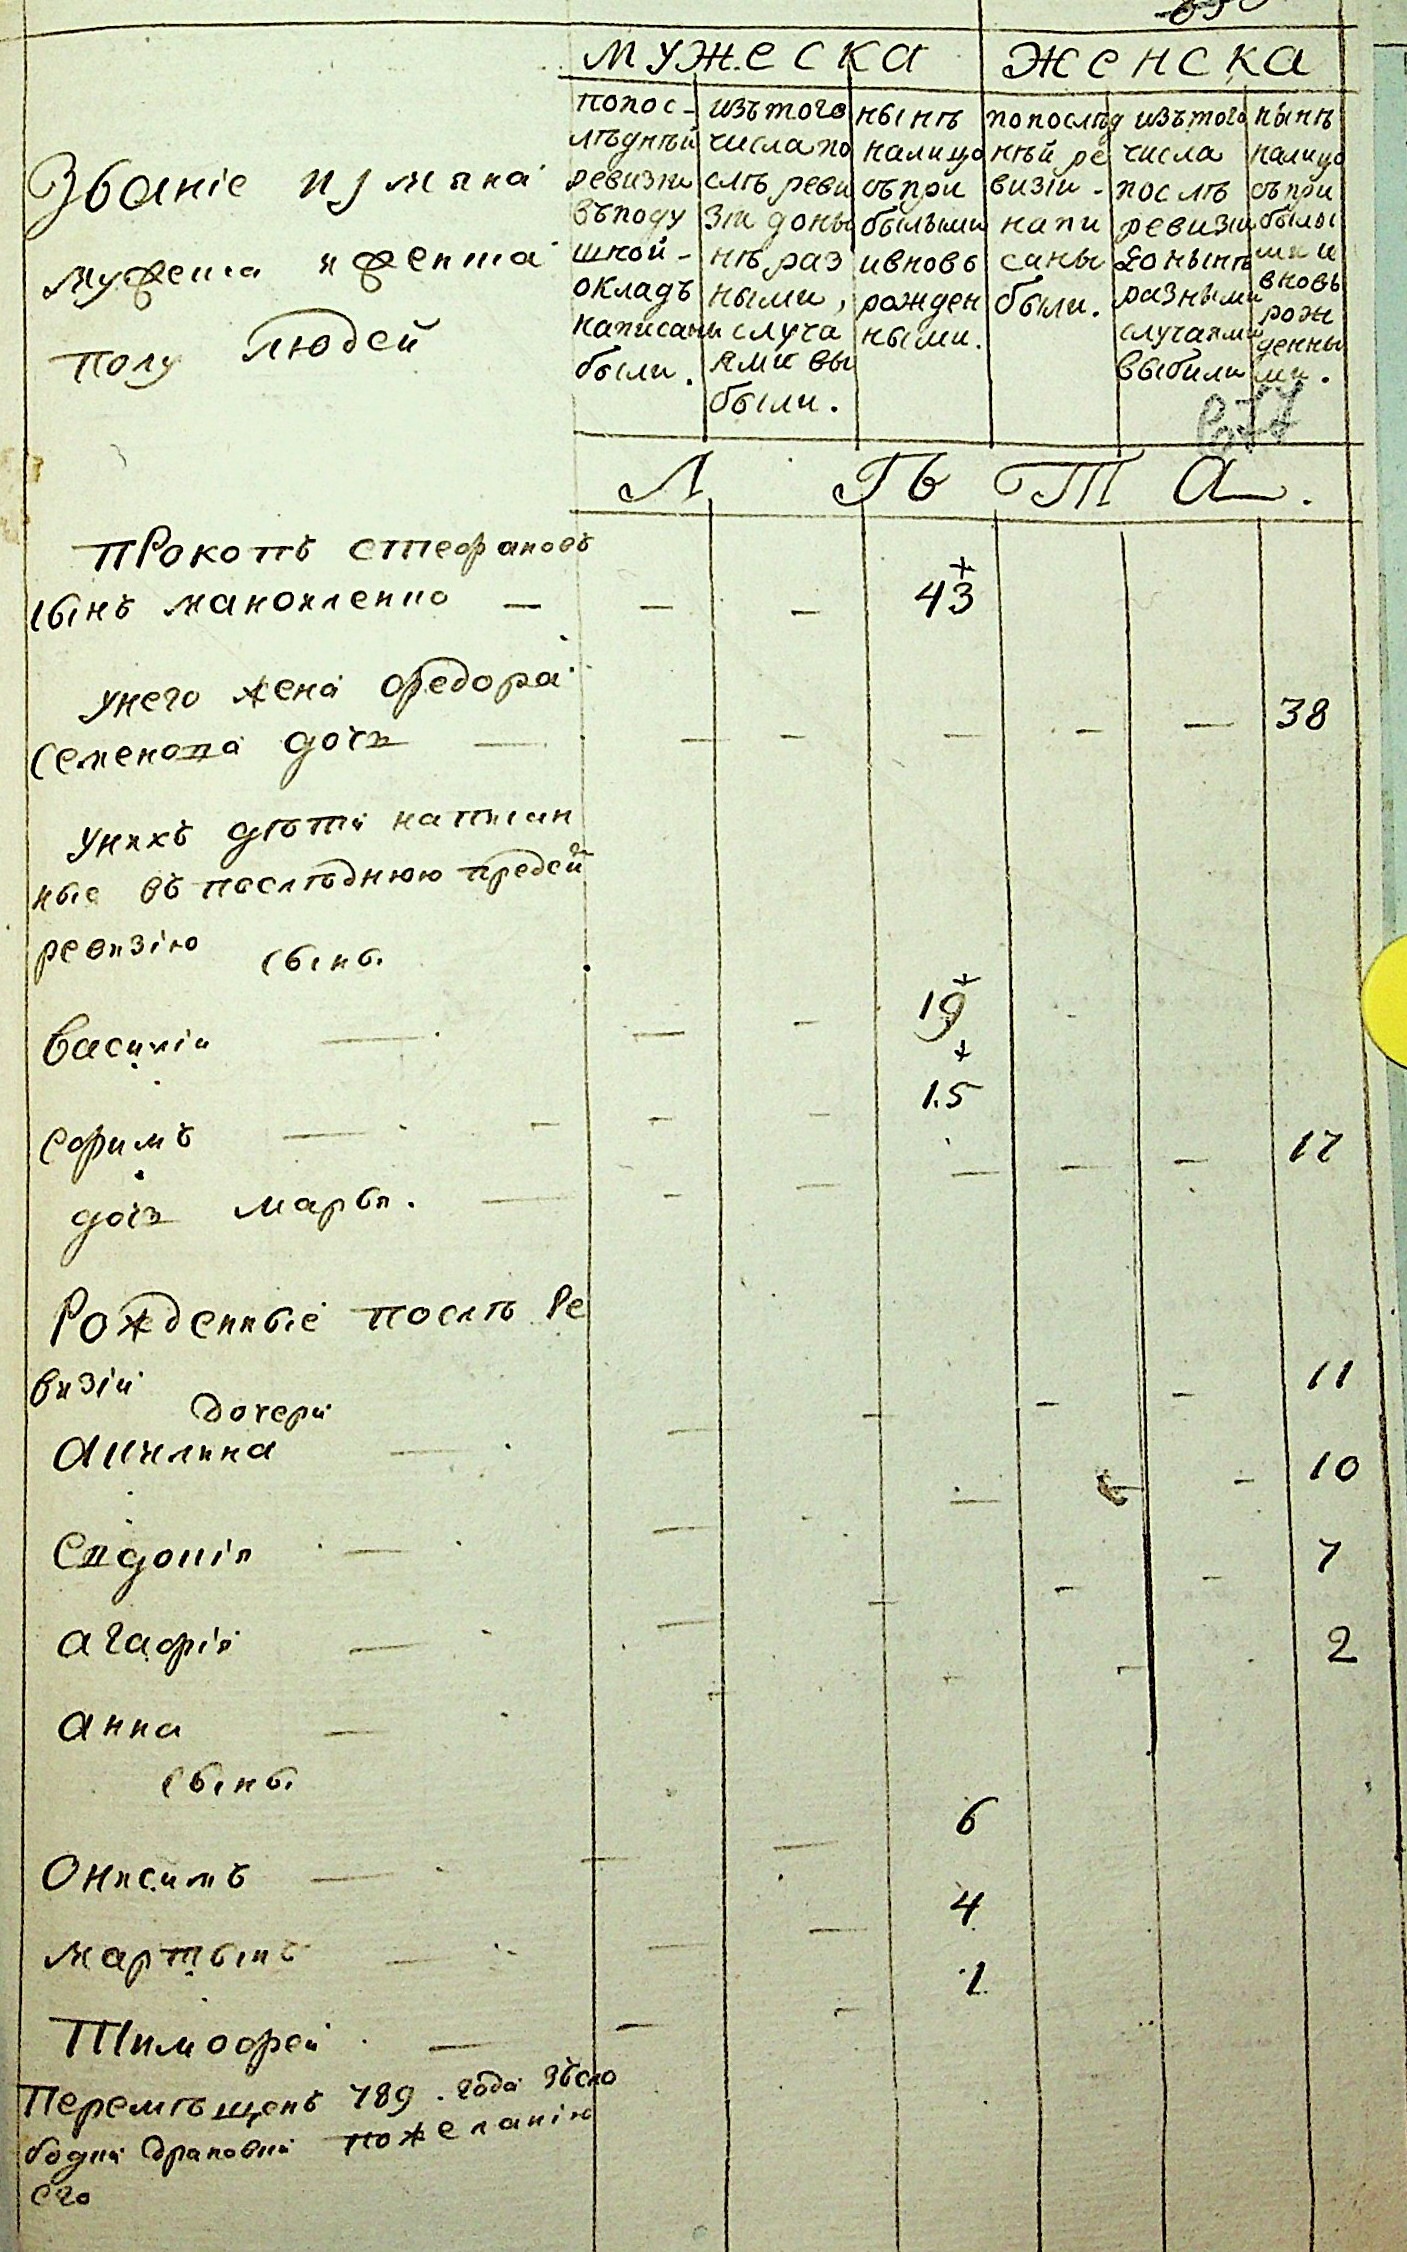 мужеска женска
Званіе и имяна
мужеска и женска
полу людей
попос-
лѣднѣй
ревизіи
въподу
шной-
окладъ
написаны
были.
изътого
числапо
слѣ реви
зіи доны
нѣ раз
ными,
случа
ями вы
были.
нынѣ
налицо
съпри
былыми
ивновь
рожден
ными.
попослѣд
нѣй ре
визіи-
напи
саны
были.
изътого
числа
послѣ
ревизіи
донынѣ
разными
случаями
выбыли
нынѣ
налицо
съпри
былы
ми и
вновь
рож
денны
ми.
Л ѣ т а.
Прокопъ Стефановъ
сынъ Манойленко — — — 43
унего жена Федора
Семенова дочь — — — — — — 38
унихъ дѣти написан
ные въ послѣднюю предсей
ревизію сынъ.
Василій — — — 19
Ефимъ — — — — 15
дочь Марья. — — — — — — 17
Рожденныіе послѣ ре
визіи
дочери
Акилина — — — — — 11
Евдокія — — — — — 10
Агафія — — — — — 7
Анна — — — — 2
сынъ.
Онисимъ — — — 6
Мартынъ — — — 4
Тимофей — — — 1
Перемѣщенъ 789. года зъсло
бодки пожеланію
его